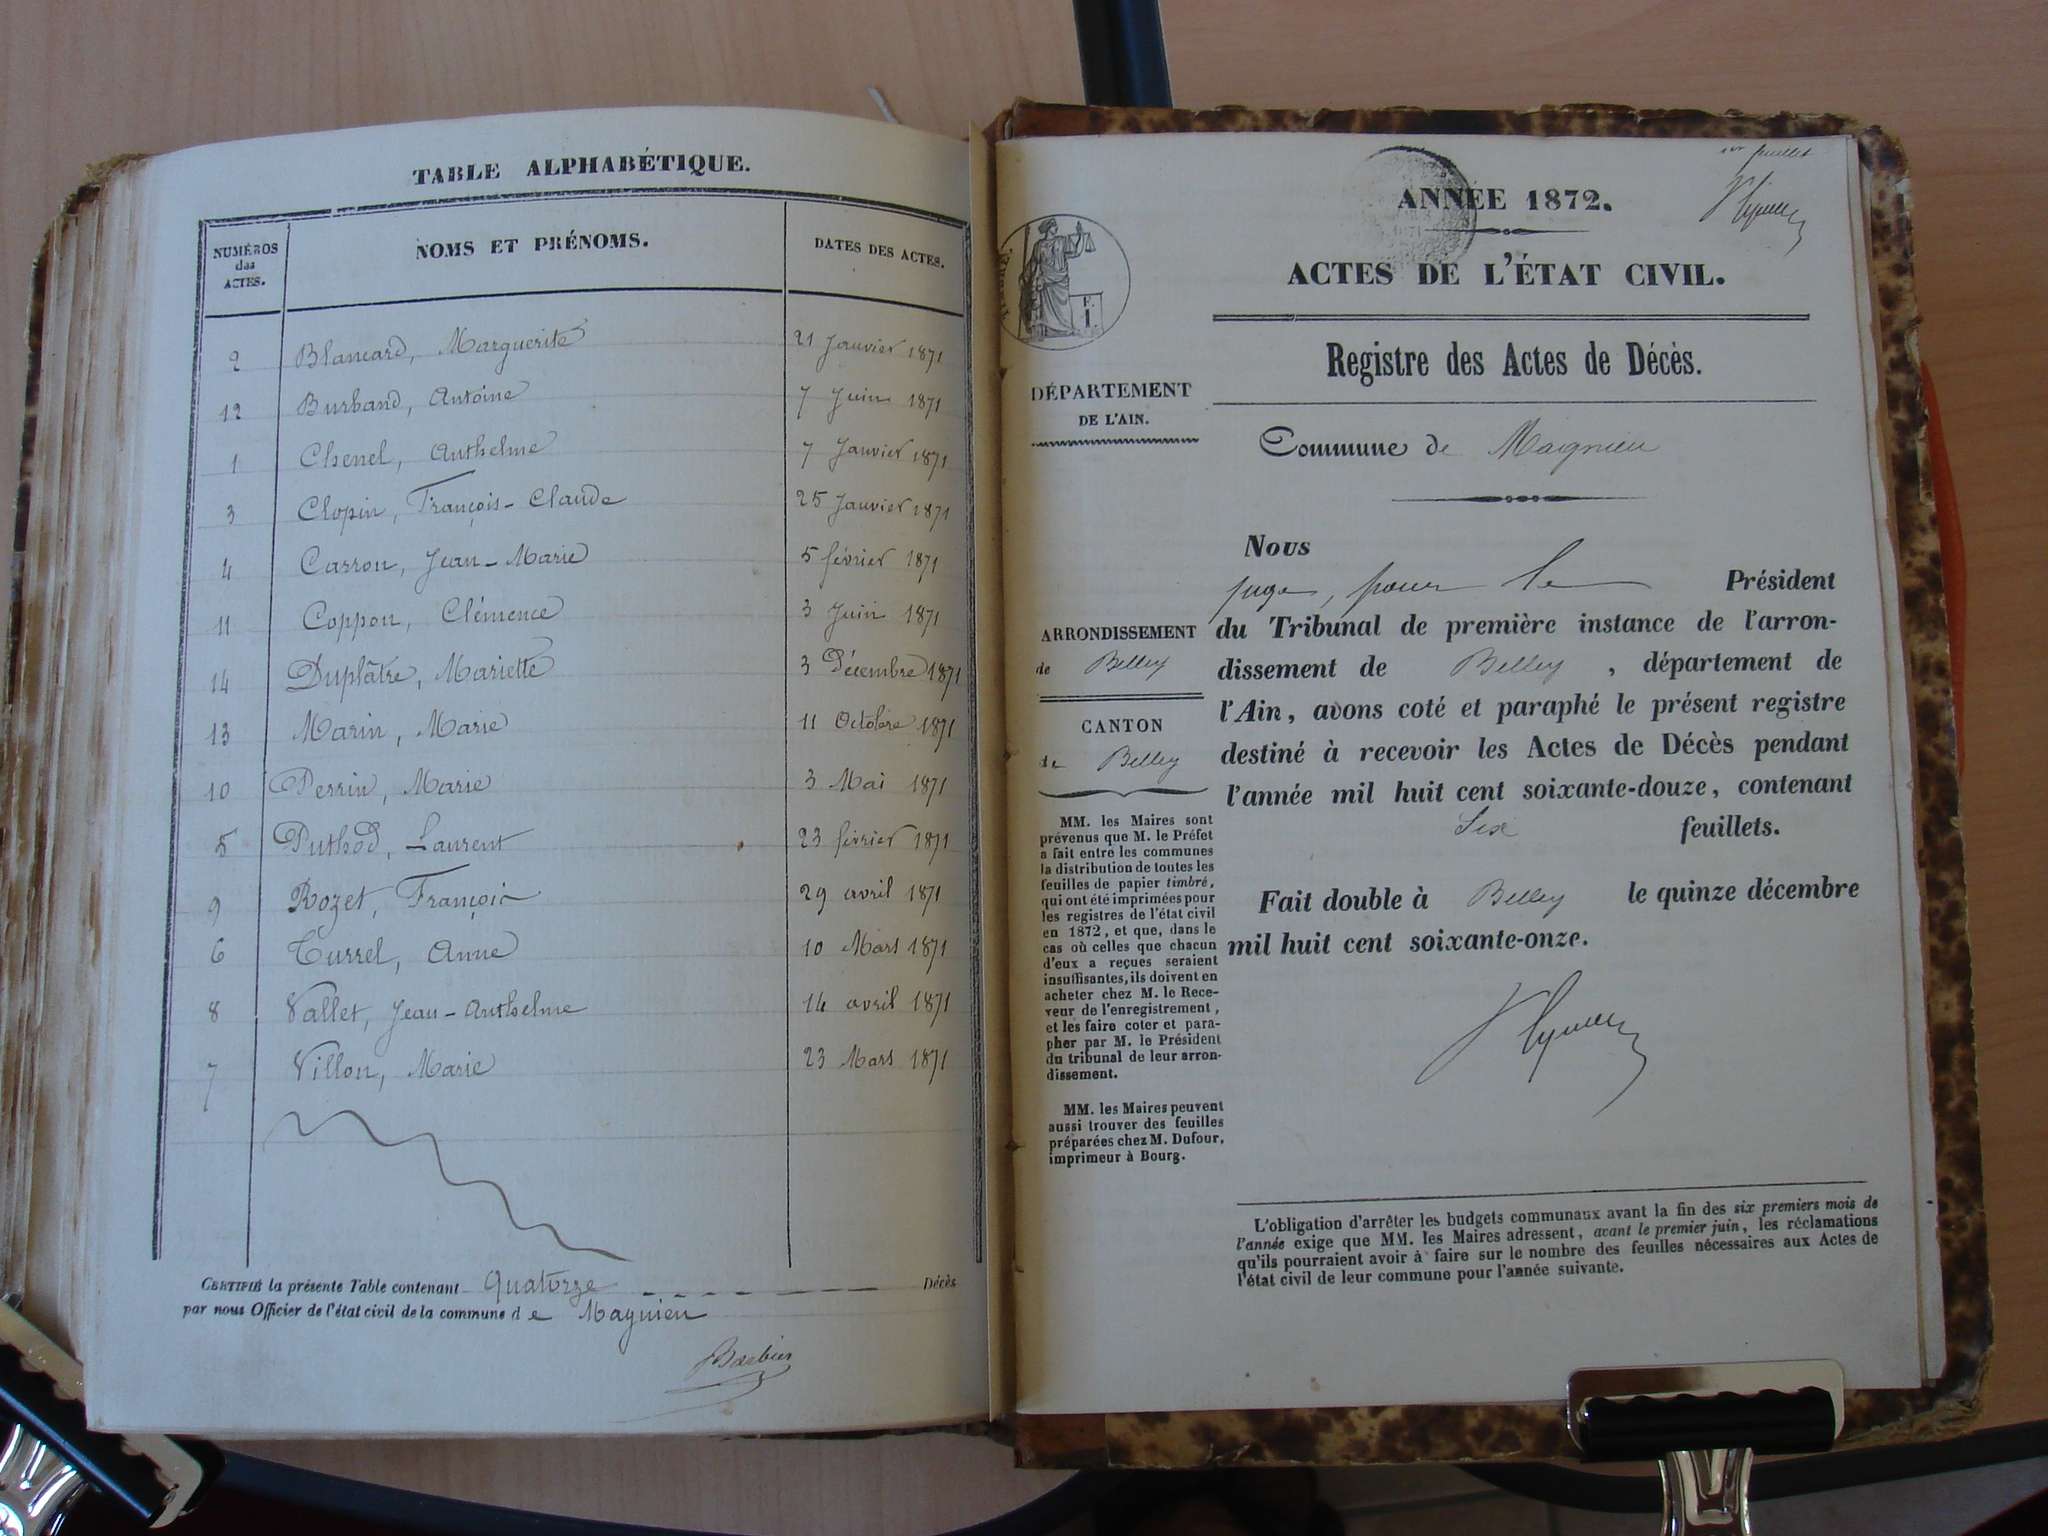 TABLE ALPHABÉTIQUE.
NUMÉROS des ACTES. NOMS ET PRÉNOMS. DATES DES ACTES.
2 Blancard, Marguerite 21 Janvier 1871
12 Burband, Antoine 7 Juin 1871
1 Chenel, Anthelme 7 Janvier 1871
3 Clopin, François-Claude 25 Janvier 1871
4 Carron, Jean-Marie 5 février 1871
11 Coppon, Clémence 3 Juin 1871
14 Duplâtre, Mariette 3 Décembre 1871
13 Marin, Marie 11 Octobre 1871
10 Perrin, Marie 3 Mai 1871
5 Puthod, Laurent 23 février 1871
9 Rozet, François 29 avril 1871
6 Turrel, Anne 10 Mars 1871
8 Vallet, Jean-Anthelme 14 avril 1871
7 Villon, Marie 23 Mars 1871
CERTIFIÉ la présente Table contenant Quatorze Décès
par nous Officier de l'état civil de la commune de Magnieu
Barbier
1er feuillet
ANNÉE 1872.
ACTES DE L'ÉTAT CIVIL.
Registre des Actes de Décès.
DÉPARTEMENT
DE L'AIN.
Commune de Magnieu
ARRONDISSEMENT
de Belley
CANTON
de Belley
MM. les Maires sont
prévenus que M. le Préfet
a fait entre les communes
la distribution de toutes les
feuilles de papier timbré,
qui ont été imprimées pour
les registres de l'état civil
en 1872, et que, dans le
cas où celles que chacun
d'eux a reçues seraient
insuffisantes, ils doivent en
acheter chez M. le Rece-
veur de l'enregistrement,
et les faire coter et para-
pher par M. le Président
du tribunal de leur arron-
dissement.
MM. les Maires peuvent
aussi trouver des feuilles
préparées chez M. Dufour,
imprimeur à Bourg.
Nous
juge, pour le Président
du Tribunal de première instance de l'arron-
dissement de Belley, département de
l'Ain, avons coté et paraphé le présent registre
destiné à recevoir les Actes de Décès pendant
l'année mil huit cent soixante-douze, contenant
Six feuillets.
Fait double à Belley le quinze décembre
mil huit cent soixante-onze.
L'obligation d'arrêter les budgets communaux avant la fin des six premiers mois de
l'année exige que MM. les Maires adressent, avant le premier juin, les réclamations
qu'ils pourraient avoir à faire sur le nombre des feuilles nécessaires aux Actes de
l'état civil de leur commune pour l'année suivante.